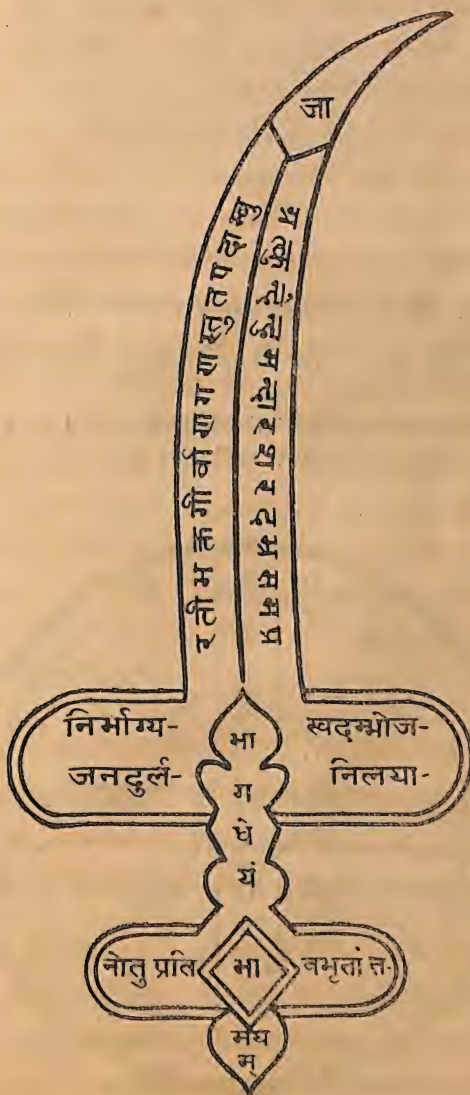 जा
रतीभक्तगीर्वाणगणस्तुतपदाम्बु
ग्रत्कुन्देन्दुमन्दारशारदभ्रसमप्र
निर्भाग्य-
जनदुर्ल-
भा
ग
धे
यं
स्वदम्भोज-
निलया-
नोतु प्रति
भा
वभृतां त-
मेघ
म्